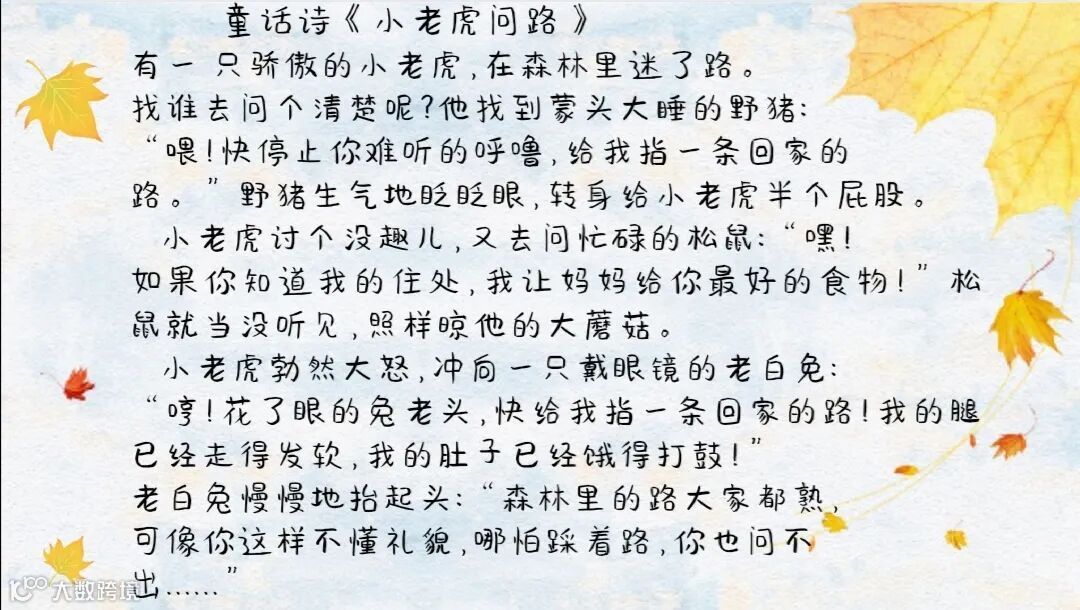 童话诗《小老虎问路》
有一只骄傲的小老虎,在森林里迷了路。
找谁去问个清楚呢?他找到蒙头大睡的野猪:
“喂!快停止你难听的呼噜,给我指一条回家的
路。”野猪生气地眨眨眼,转身给小老虎半个屁股。
小老虎讨个没趣儿,又去问忙碌的松鼠:“嘿!
如果你知道我的住处,我让妈妈给你最好的食物!”松
鼠就当没听见,照样晾他的大蘑菇。
小老虎勃然大怒,冲向一只戴眼镜的老白兔:
“哼!花了眼的兔老头,快给我指一条回家的路!我的腿
已经走得发软,我的肚子已经饿得打鼓!”
老白兔慢慢地抬起头:“森林里的路大家都熟,
可像你这样不懂礼貌,哪怕踩着路,你也问不
出……”
大数跨境